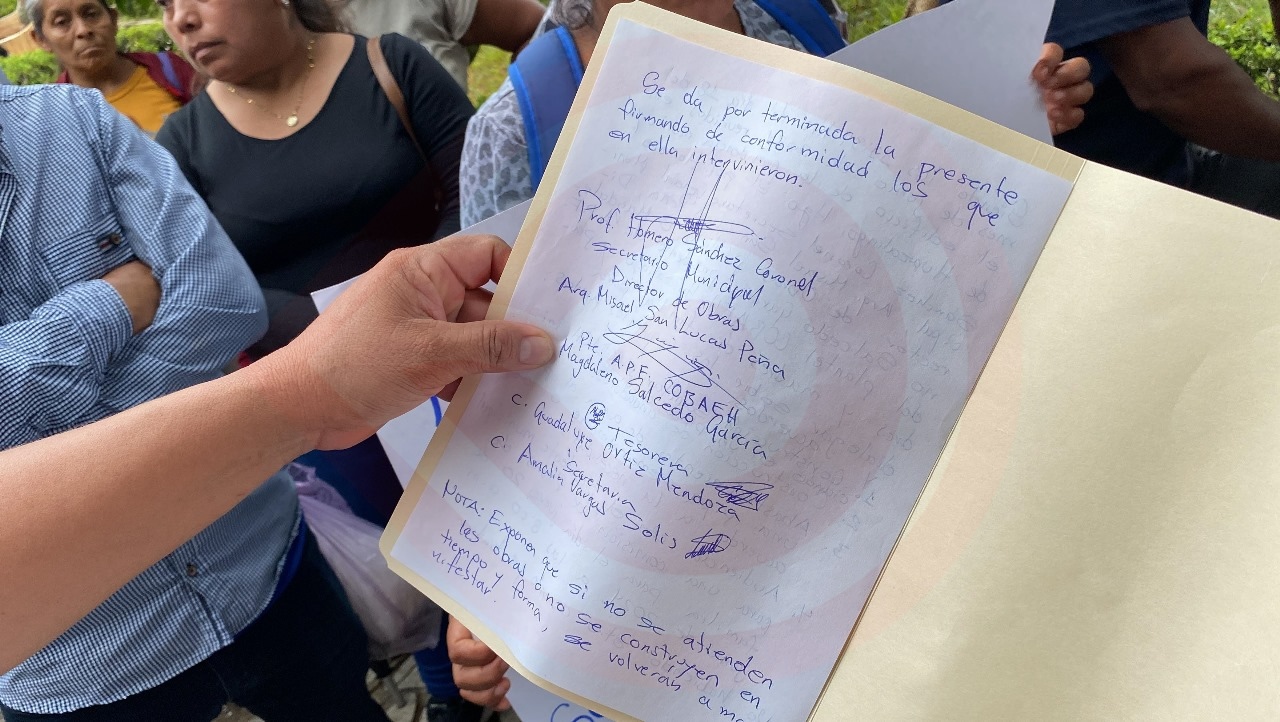 Se da por terminada la presente
firmando de conformidad los que
en ella intervinieron.
Prof. Homero Sánchez Coronel
Secretario Municipal.
Director de Obras
Arq. Misael San Lucas Peña
Pte. A.P.F. COBAEH
Magdaleno Salcedo García
Tesorera
C. Guadalupe Ortiz Mendoza
Secretaria
C. Amalia Vargas Solis
NOTA: Exponen que si no se atienden
las obras o no se construyen en
tiempo y forma, se volverán a ma
nifestar.